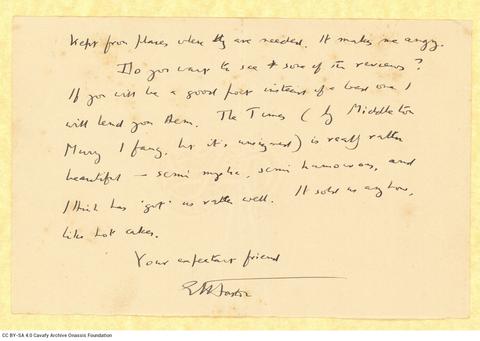 kept from places where they are needed. It makes me angry.
Do you want to see some of the reviews?
If you will be a good poet instead of a bad one I
will lend you them. The Times (by Middleton
Murry I fancy, but it's unsigned) is really rather
beautiful — semi mystic, semi humorous, and
I think has 'got' us rather well. It sold us anyhow,
like hot cakes.
Your expectant friend
EMForster
CC BY-SA 4.0 Cavafy Archive Onassis Foundation